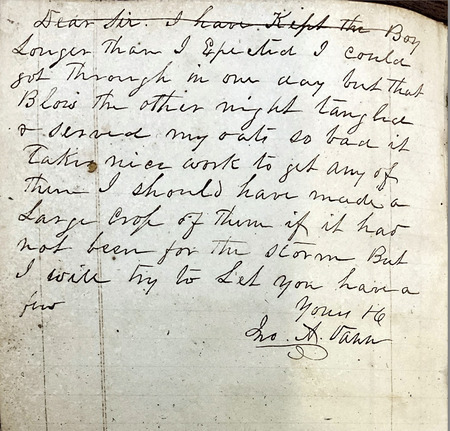 Dear Sir. I have Kept the Boy
Longer than I Epected I could
got through in one day but that
Blow the other night tangled
& served my oats so bad it
takes nice work to get any of
them I should have made a
Large crop of them if it had
not been for the storm But
I will try to Let you have a
few
Yours &c
Jno. A. Vann